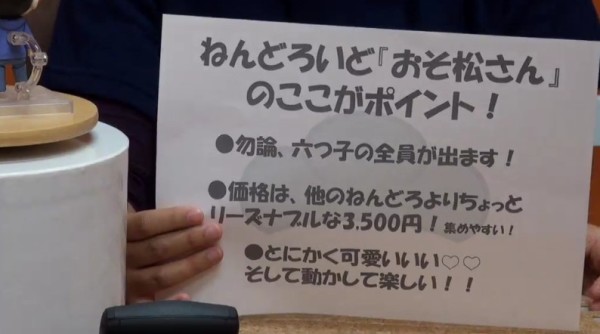 ねんどろいど『おそ松さん』
のここがポイント！
●勿論、六つ子の全員が出ます！
●価格は、他のねんどろよりちょっと
リーズナブルな3,500円！集めやすい！
●とにかく可愛いいい♡♡
そして動かして楽しい！！